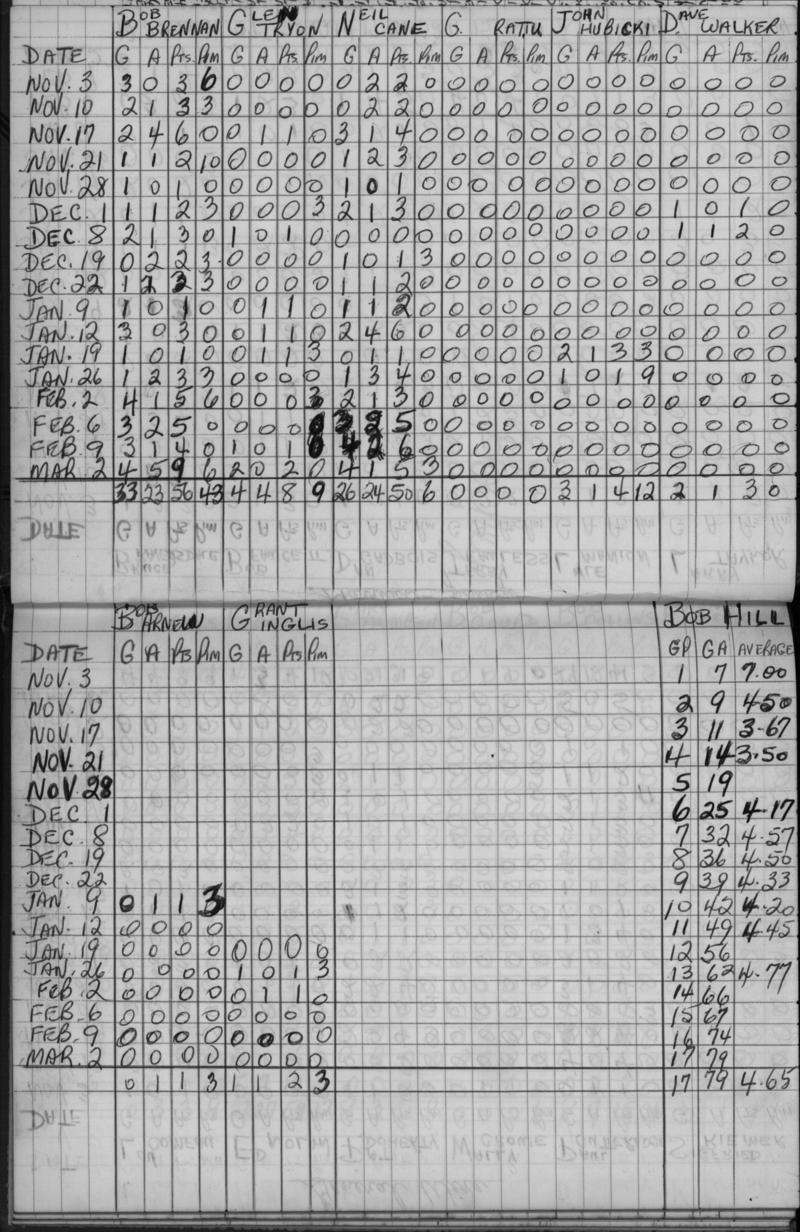 BOB BRENNAN GLEN TRYON NEIL CANE G. RATTU JOHN HUBICKI DAVE WALKER
DATE G A Pts. Pim G A Pts. Pim G A Pts. Pim G A Pts. Pim G A Pts. Pim G A Pts. Pim
NOV. 3 3 0 3 6 0 0 0 0 0 2 2 0 0 0 0 0 0 0 0 0 0 0 0 0
NOV. 10 2 1 3 3 0 0 0 0 0 2 2 0 0 0 0 0 0 0 0 0 0 0 0 0
NOV. 17 2 4 6 0 0 1 1 0 3 1 4 0 0 0 0 0 0 0 0 0 0 0 0 0
NOV. 21 1 1 2 10 0 0 0 0 1 2 3 0 0 0 0 0 0 0 0 0 0 0 0 0
NOV. 28 1 0 1 0 0 0 0 0 1 0 1 0 0 0 0 0 0 0 0 0 0 0 0 0
DEC. 1 1 1 2 3 0 0 0 3 2 1 3 0 0 0 0 0 0 0 0 0 1 0 1 0
DEC. 8 2 1 3 0 1 0 1 0 0 0 0 0 0 0 0 0 0 0 0 0 1 1 2 0
DEC. 19 0 2 2 3 0 0 0 0 1 0 1 3 0 0 0 0 0 0 0 0 0 0 0 0
DEC. 22 1 2 3 3 0 0 0 0 1 1 2 0 0 0 0 0 0 0 0 0 0 0 0 0
JAN. 9 1 0 1 0 0 1 1 0 1 1 2 0 0 0 0 0 0 0 0 0 0 0 0 0
JAN. 12 3 0 3 0 0 1 1 0 2 4 6 0 0 0 0 0 0 0 0 0 0 0 0 0
JAN. 19 1 0 1 0 0 1 1 3 0 1 1 0 0 0 0 0 2 1 3 3 0 0 0 0
JAN. 26 1 2 3 3 0 0 0 0 1 3 4 0 0 0 0 0 1 0 1 9 0 0 0 0
FEB. 2 4 1 5 6 0 0 0 3 2 1 3 0 0 0 0 0 0 0 0 0 0 0 0 0
FEB. 6 3 2 5 0 0 0 0 0 3 2 5 0 0 0 0 0 0 0 0 0 0 0 0 0
FEB. 9 3 1 4 0 1 0 1 0 4 2 6 0 0 0 0 0 0 0 0 0 0 0 0 0
MAR. 2 4 5 9 6 2 0 2 0 4 1 5 3 0 0 0 0 0 0 0 0 0 0 0 0
33 23 56 43 4 4 8 9 26 24 50 6 0 0 0 0 3 1 4 12 2 1 3 0
BOB ARNEW GRANT INGLIS BOB HILL
DATE G A Pts Pim G A Pts Pim GP GA AVERAGE
NOV. 3 1 7 7.00
NOV. 10 2 9 4.50
NOV. 17 3 11 3.67
NOV. 21 4 14 3.50
NOV. 28 5 19
DEC. 1 6 25 4.17
DEC. 8 7 32 4.57
DEC. 19 8 36 4.50
DEC. 22 9 39 4.33
JAN. 9 0 1 1 3 10 42 4.20
JAN. 12 0 0 0 0 11 49 4.45
JAN. 19 0 0 0 0 0 0 0 0 12 56
JAN. 26 0 0 0 0 1 0 1 3 13 62 4.77
FEB. 2 0 0 0 0 0 1 1 0 14 66
FEB. 6 0 0 0 0 0 0 0 0 15 67
FEB. 9 0 0 0 0 0 0 0 0 16 74
MAR. 2 0 0 0 0 0 0 0 0 17 79
0 1 1 3 1 1 2 3 17 79 4.65